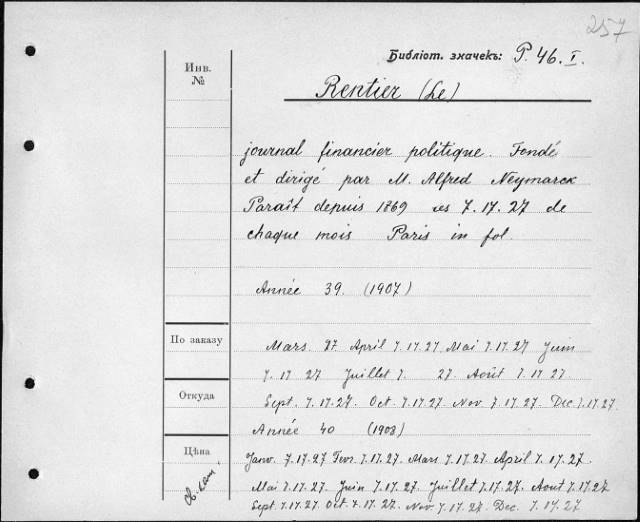 257
Библіот. значекъ: P. 46. I.
Инв. №
Rentier (Le)
journal financier politique. Fondé
et dirigé par M. Alfred Neymarck
Paraît depuis 1869 les 7.17.27 de
chaque mois Paris in fol.
Année 39. (1907)
По заказу
Mars. 27 April 7.17.27. Mai 7.17.27 Juin
7.17 27 Juillet 7. 27. Août 7.17 27
Откуда
Sept. 7.17.27. Oct. 7.17.27. Nov. 7.17.27. Dec 7.17.27.
Année 40 (1908)
Цѣна
Janv. 7.17.27 Fevr. 7.17.27. Mars 7.17.27. April 7.17.27.
Mai 7.17.27. Juin 7.17.27. Juillet 7.17.27. Aout 7.17.27
Sept. 7.17.27. Oct. 7.17.27. Nov. 7.17.27. Dec. 7.17.27.